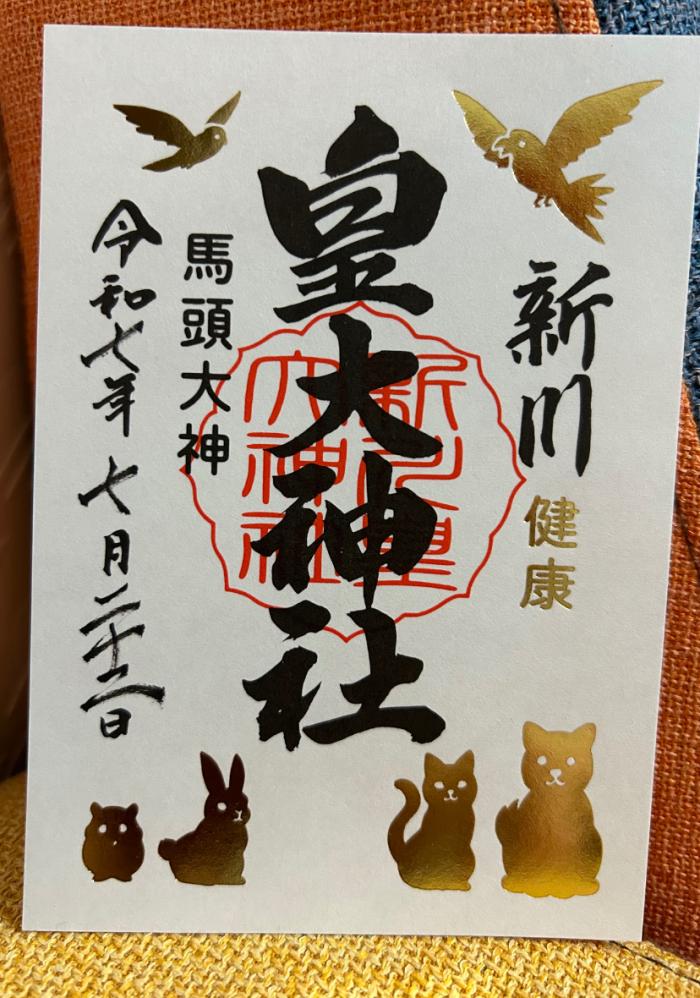 新川
健康
皇大神社
新川皇
大神社
馬頭大神
令和七年七月二十二日